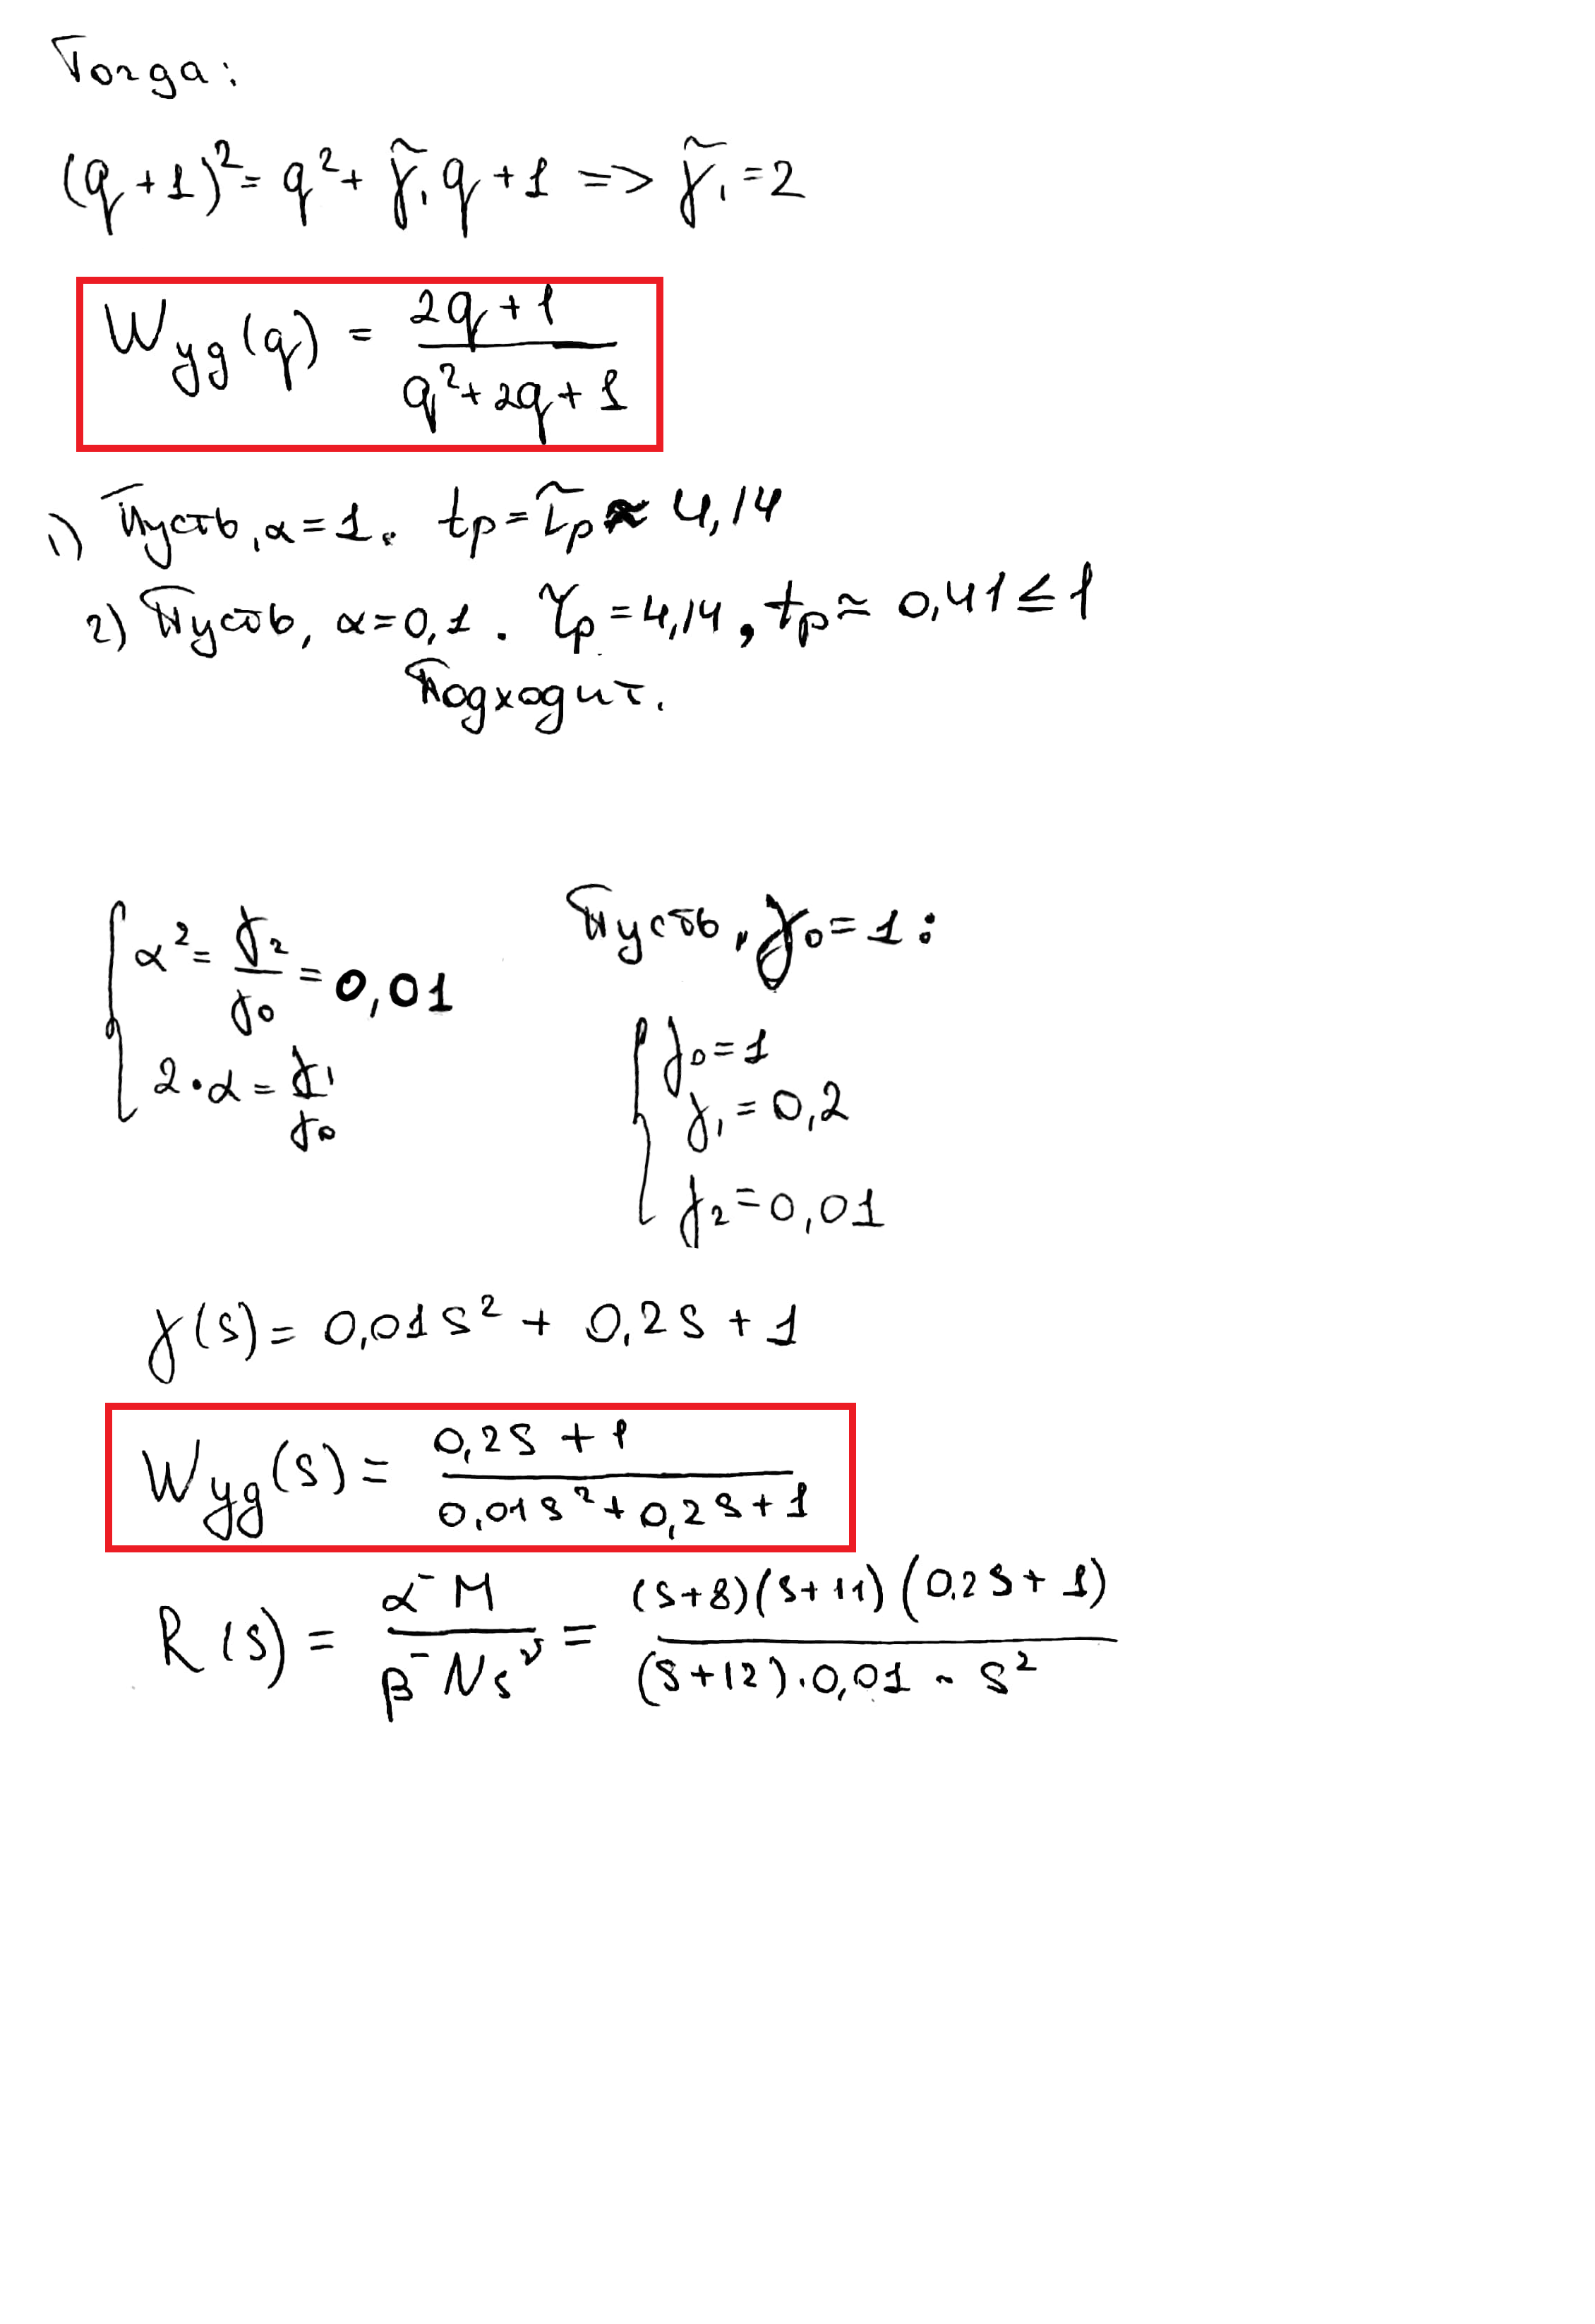 Тогда:
(q+1)² = q² + γ̃₁q + 1 => γ̃₁ = 2
W_yg(q) = (2q+1)/(q²+2q+1)
1) Пусть, α=1. tp = τ̃p ≈ 4,14
2) Пусть, α=0,1. τ̃p = 4,14, tp ≃ 0,41 ≤ 1
Подходит.
{ α² = γ₂/γ₀ = 0,01
2·α = γ₁/γ₀
Пусть, γ₀ = 1:
{ γ₀ = 1
γ₁ = 0,2
γ₂ = 0,01
γ(s) = 0,01s² + 0,2s + 1
W_yg(s) = (0,2s + 1)/(0,01s² + 0,2s + 1)
R(s) = α⁻M/(β⁻Ns^ν) = (s+8)(s+11)(0,2s+1)/((s+12)·0,01·s²)